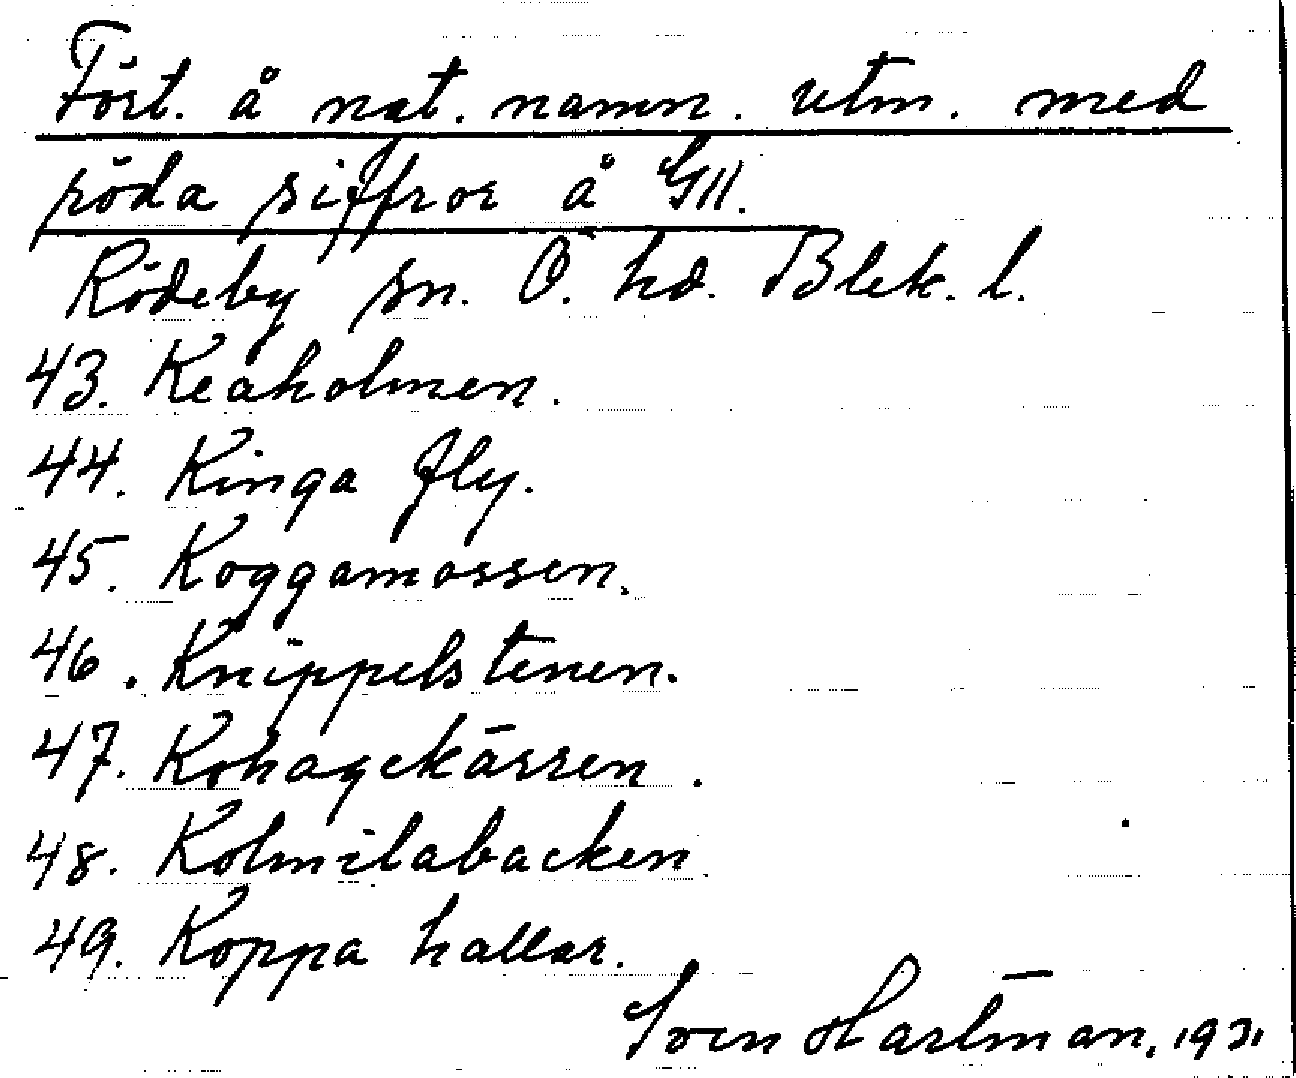 Fört. å nat. namn. utm. med
röda siffror å GII.
Rödeby sn. Ö. hd. Blek. l.
43. Keaholmen.
44. Kinga fly.
45. Koggamossen.
46. Knippelstenen.
47. Kohagekärren.
48. Kolmilabacken
49. Koppa hallar.
Sven Hartman, 1931